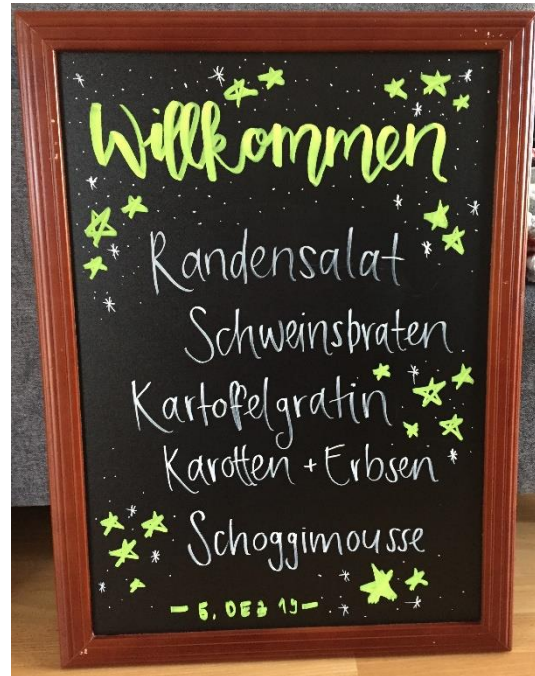 Willkommen
Randensalat
Schweinsbraten
Kartoffelgratin
Karotten + Erbsen
Schoggimousse
- 5. DEZ 19 -